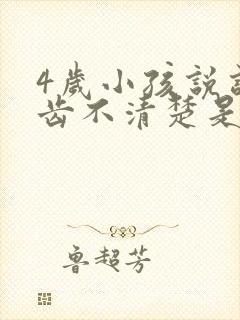 4歲小孩說
齿不清楚是
鲁超芳